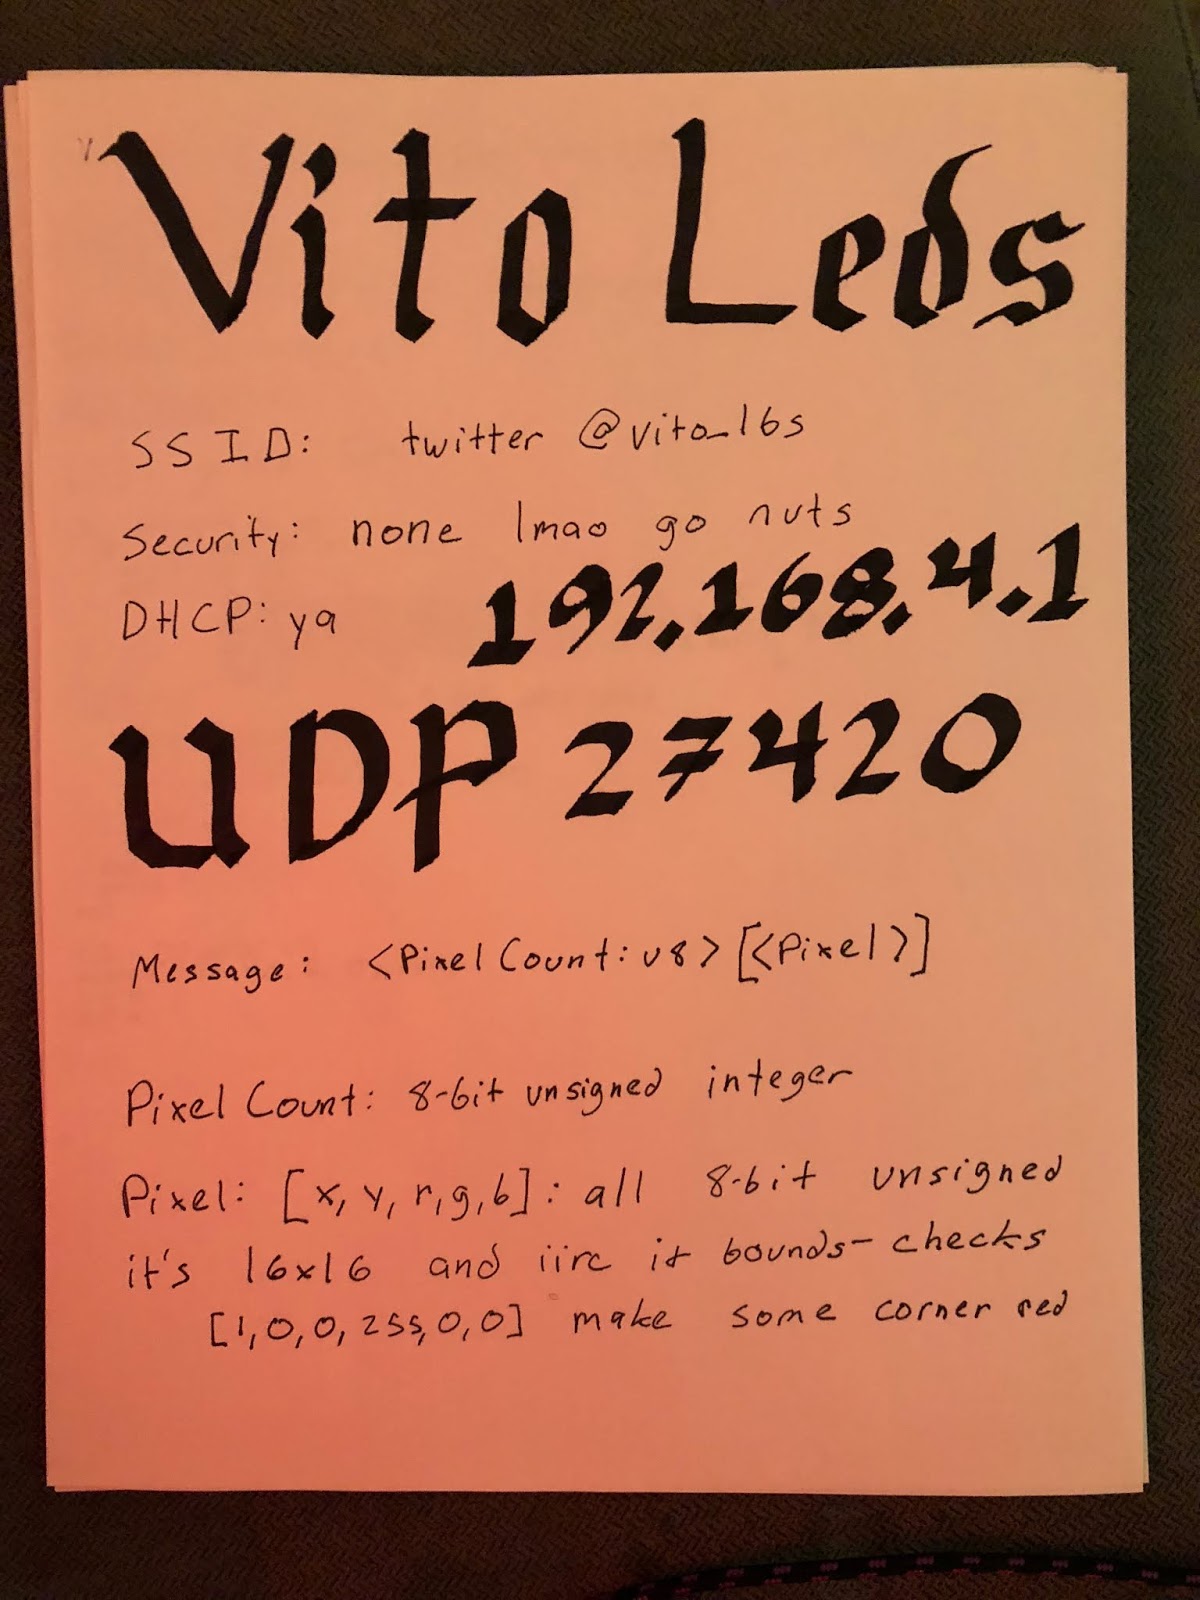 Vito Leds
SSID: twitter @vito_16s
Security: none lmao go nuts
DHCP: ya 192.168.4.1
UDP 27420
Message: <Pixel Count: u8> [<Pixel>]
Pixel Count: 8-bit unsigned integer
Pixel: [x, y, r, g, b]: all 8-bit unsigned
it's 16x16 and iirc it bounds-checks
[1, 0, 0, 255, 0, 0] make some corner red